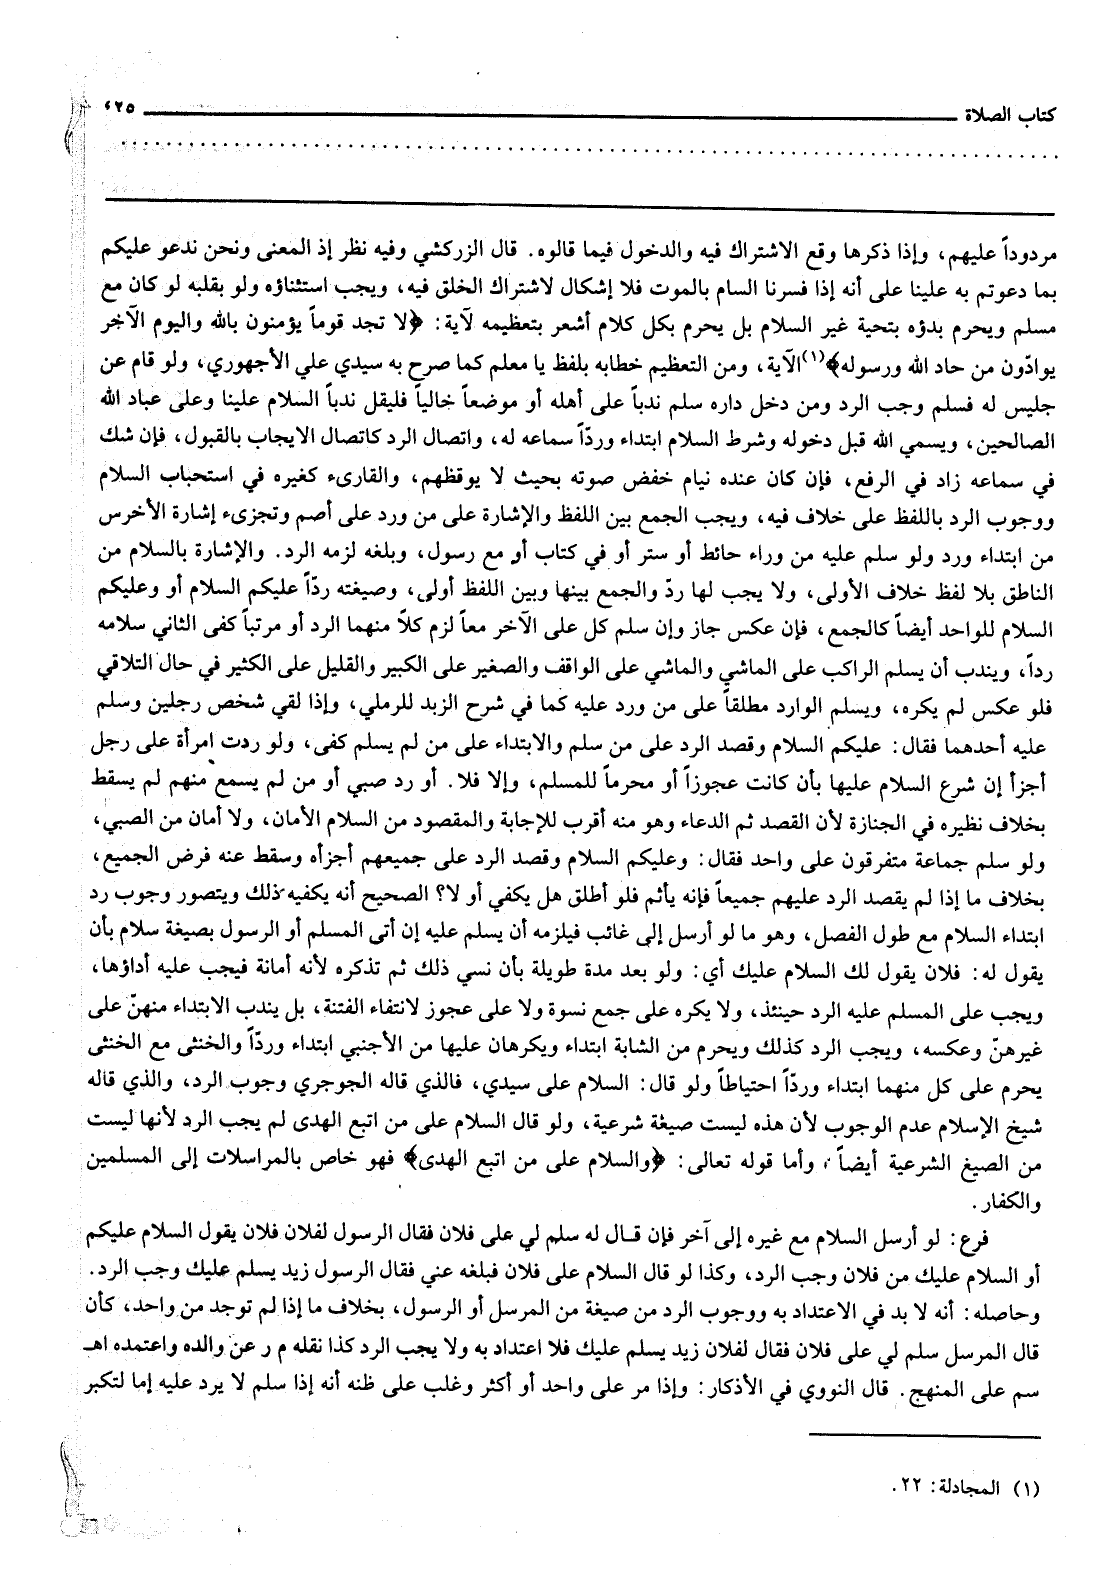 كتاب الصلاة ٤٢٥
مردوداً عليهم، وإذا ذكرها وقع الاشتراك فيه والدخول فيما قالوه. قال الزركشي وفيه نظر إذ المعنى ونحن ندعو عليكم
بما دعوتم به علينا على أنه إذا فسرنا السام بالموت فلا إشكال لاشتراك الخلق فيه، ويجب استثناؤه ولو بقلبه لو كان مع
مسلم ويحرم بدؤه بتحية غير السلام بل يحرم بكل كلام أشعر بتعظيمه لآية: ﴿لا تجد قوماً يؤمنون بالله واليوم الآخر
يوادّون من حاد الله ورسوله﴾(١) الآية، ومن التعظيم خطابه بلفظ يا معلم كما صرح به سيدي علي الأجهوري، ولو قام عن
جليس له فسلم وجب الرد ومن دخل داره سلم ندباً على أهله أو موضعاً خالياً فليقل ندباً السلام علينا وعلى عباد الله
الصالحين، ويسمي الله قبل دخوله وشرط السلام ابتداء وردّاً سماعه له، واتصال الرد كاتصال الايجاب بالقبول، فإن شك
في سماعه زاد في الرفع، فإن كان عنده نيام خفض صوته بحيث لا يوقظهم، والقارىء كغيره في استحباب السلام
ووجوب الرد باللفظ على خلاف فيه، ويجب الجمع بين اللفظ والإشارة على من ورد على أصم وتجزىء إشارة الأخرس
من ابتداء ورد ولو سلم عليه من وراء حائط أو ستر أو في كتاب أو مع رسول، وبلغه لزمه الرد. والإشارة بالسلام من
الناطق بلا لفظ خلاف الأولى، ولا يجب لها ردّ والجمع بينها وبين اللفظ أولى، وصيغته ردّاً عليكم السلام أو وعليكم
السلام للواحد أيضاً كالجمع، فإن عكس جاز وإن سلم كل على الآخر معاً لزم كلاً منهما الرد أو مرتباً كفى الثاني سلامه
رداً، ويندب أن يسلم الراكب على الماشي والماشي على الواقف والصغير على الكبير والقليل على الكثير في حال التلاقي
فلو عكس لم يكره، ويسلم الوارد مطلقاً على من ورد عليه كما في شرح الزبد للرملي، وإذا لقي شخص رجلين وسلم
عليه أحدهما فقال: عليكم السلام وقصد الرد على من سلم والابتداء على من لم يسلم كفى، ولو ردت امرأة على رجل
أجزأ إن شرع السلام عليها بأن كانت عجوزاً أو محرماً للمسلم، وإلا فلا. أو رد صبي أو من لم يسمع منهم لم يسقط
بخلاف نظيره في الجنازة لأن القصد ثم الدعاء وهو منه أقرب للإجابة والمقصود من السلام الأمان، ولا أمان من الصبي،
ولو سلم جماعة متفرقون على واحد فقال: وعليكم السلام وقصد الرد على جميعهم أجزأه وسقط عنه فرض الجميع،
بخلاف ما إذا لم يقصد الرد عليهم جميعاً فإنه يأثم فلو أطلق هل يكفي أو لا؟ الصحيح أنه يكفيه ذلك ويتصور وجوب رد
ابتداء السلام مع طول الفصل، وهو ما لو أرسل إلى غائب فيلزمه أن يسلم عليه إن أتى المسلم أو الرسول بصيغة سلام بأن
يقول له: فلان يقول لك السلام عليك أي: ولو بعد مدة طويلة بأن نسي ذلك ثم تذكره لأنه أمانة فيجب عليه أداؤها،
ويجب على المسلم عليه الرد حينئذ، ولا يكره على جمع نسوة ولا على عجوز لانتفاء الفتنة، بل يندب الابتداء منهنّ على
غيرهنّ وعكسه، ويجب الرد كذلك ويحرم من الشابة ابتداء ويكرهان عليها من الأجنبي ابتداء وردّاً والخنثى مع الخنثى
يحرم على كل منهما ابتداء وردّاً احتياطاً ولو قال: السلام على سيدي، فالذي قاله الجوجري وجوب الرد، والذي قاله
شيخ الإسلام عدم الوجوب لأن هذه ليست صيغة شرعية، ولو قال السلام على من اتبع الهدى لم يجب الرد لأنها ليست
من الصيغ الشرعية أيضاً، وأما قوله تعالى: ﴿والسلام على من اتبع الهدى﴾ فهو خاص بالمراسلات إلى المسلمين
والكفار.
فرع: لو أرسل السلام مع غيره إلى آخر فإن قال له سلم لي على فلان فقال الرسول لفلان فلان يقول السلام عليكم
أو السلام عليك من فلان وجب الرد، وكذا لو قال السلام على فلان فبلغه عني فقال الرسول زيد يسلم عليك وجب الرد.
وحاصله: أنه لا بد في الاعتداد به ووجوب الرد من صيغة من المرسل أو الرسول، بخلاف ما إذا لم توجد من واحد، كأن
قال المرسل سلم لي على فلان فقال لفلان زيد يسلم عليك فلا اعتداد به ولا يجب الرد كذا نقله م ر عن والده واعتمده اهـ
سم على المنهج. قال النووي في الأذكار: وإذا مر على واحد أو أكثر وغلب على ظنه أنه إذا سلم لا يرد عليه إما لتكبر
(١) المجادلة: ٢٢.